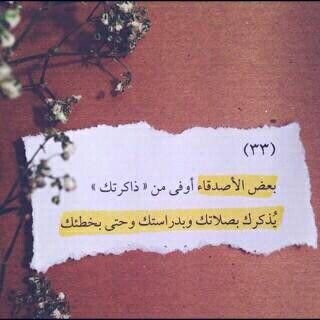 (٣٣)
بعض الأصدقاء أوفى من « ذاكرتك »
يُذكرك بصلاتك وبدراستك وحتى بخطئك